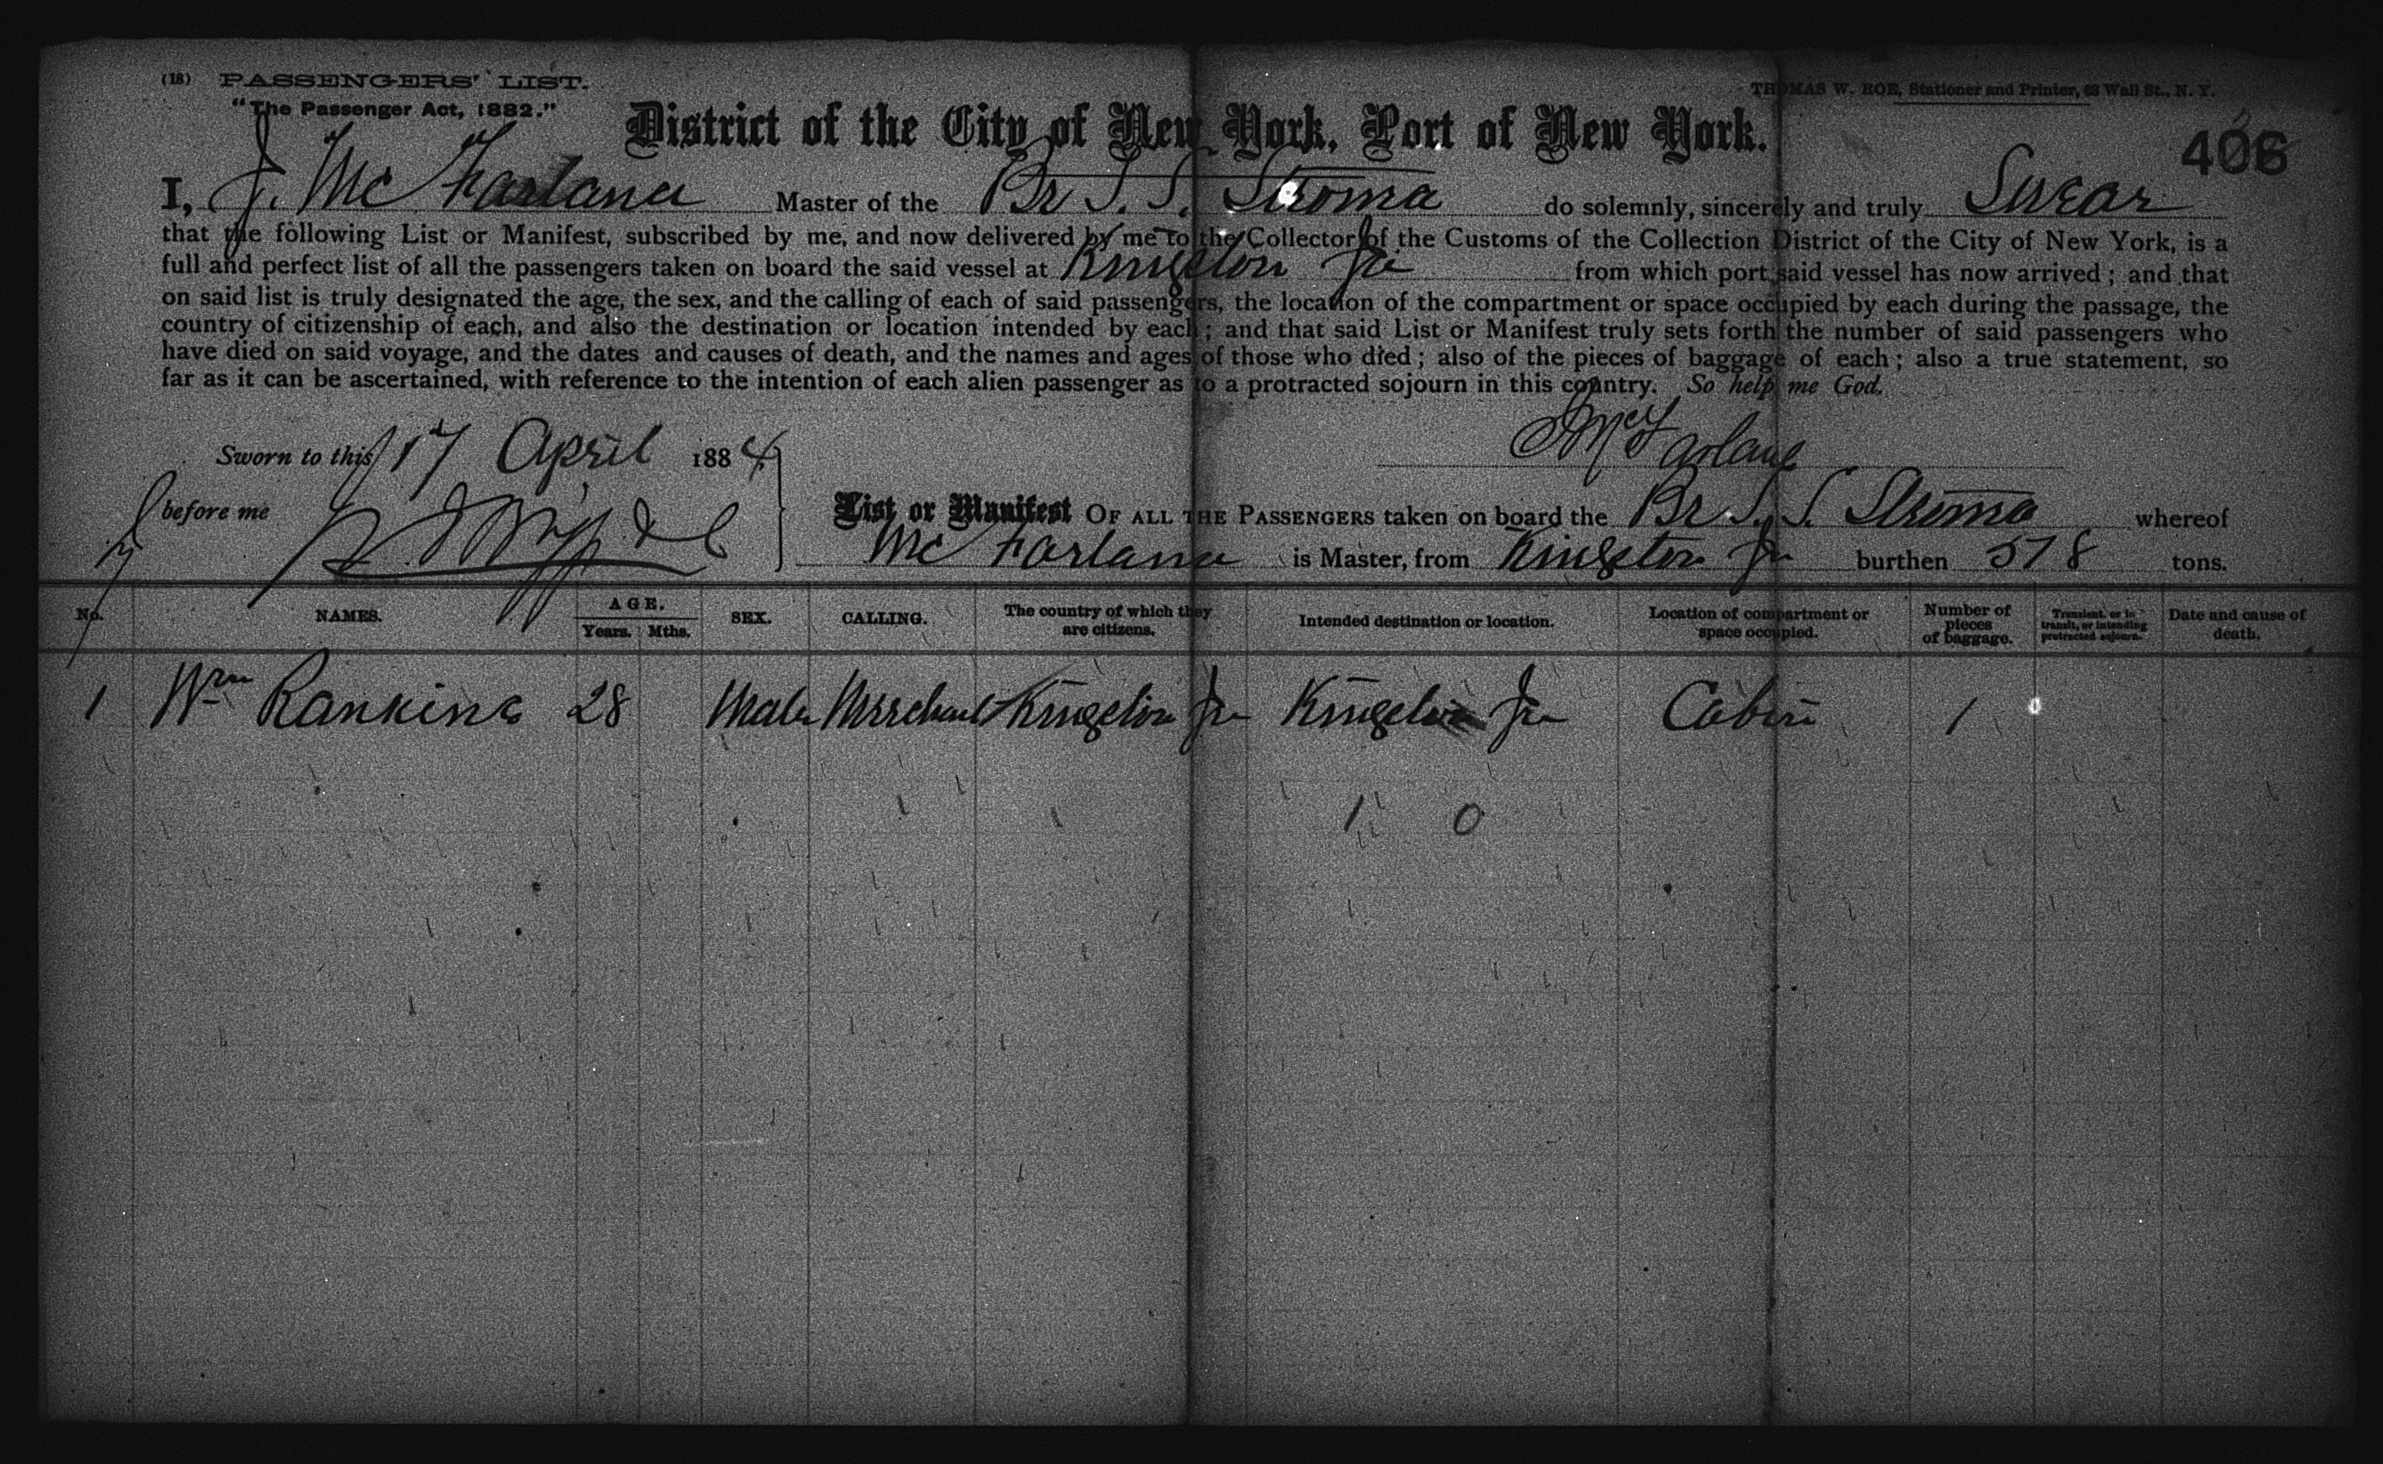 (18) PASSENGERS' LIST.
THOMAS W. ROE, Stationer and Printer, 63 Wall St., N. Y.
"The Passenger Act, 1882."
District of the City of New York, Port of New York.
406
I, J. McFarland Master of the Br S. S. Stroma do solemnly, sincerely and truly Swear
that the following List or Manifest, subscribed by me, and now delivered by me to the Collector of the Customs of the Collection District of the City of New York, is a
full and perfect list of all the passengers taken on board the said vessel at Kingston Ja from which port said vessel has now arrived; and that
on said list is truly designated the age, the sex, and the calling of each of said passengers, the location of the compartment or space occupied by each during the passage, the
country of citizenship of each, and also the destination or location intended by each; and that said List or Manifest truly sets forth the number of said passengers who
have died on said voyage, and the dates and causes of death, and the names and ages of those who died; also of the pieces of baggage of each; also a true statement, so
far as it can be ascertained, with reference to the intention of each alien passenger as to a protracted sojourn in this country. So help me God.
J McFarlane
Sworn to this 17 April 1884
before me
List or Manifest OF ALL THE PASSENGERS taken on board the Br S. S. Stroma whereof
McFarland is Master, from Kingston Ja burthen 578 tons.
No. NAMES. AGE. Years. Mths. SEX. CALLING. The country of which they are citizens. Intended destination or location. Location of compartment or space occupied. Number of pieces of baggage. Transient, or in transit, or intending protracted sojourn. Date and cause of death.
1 Wm Rankine 28 Male Merchant Kingston Ja Kingston Ja Cabin 1
1 0